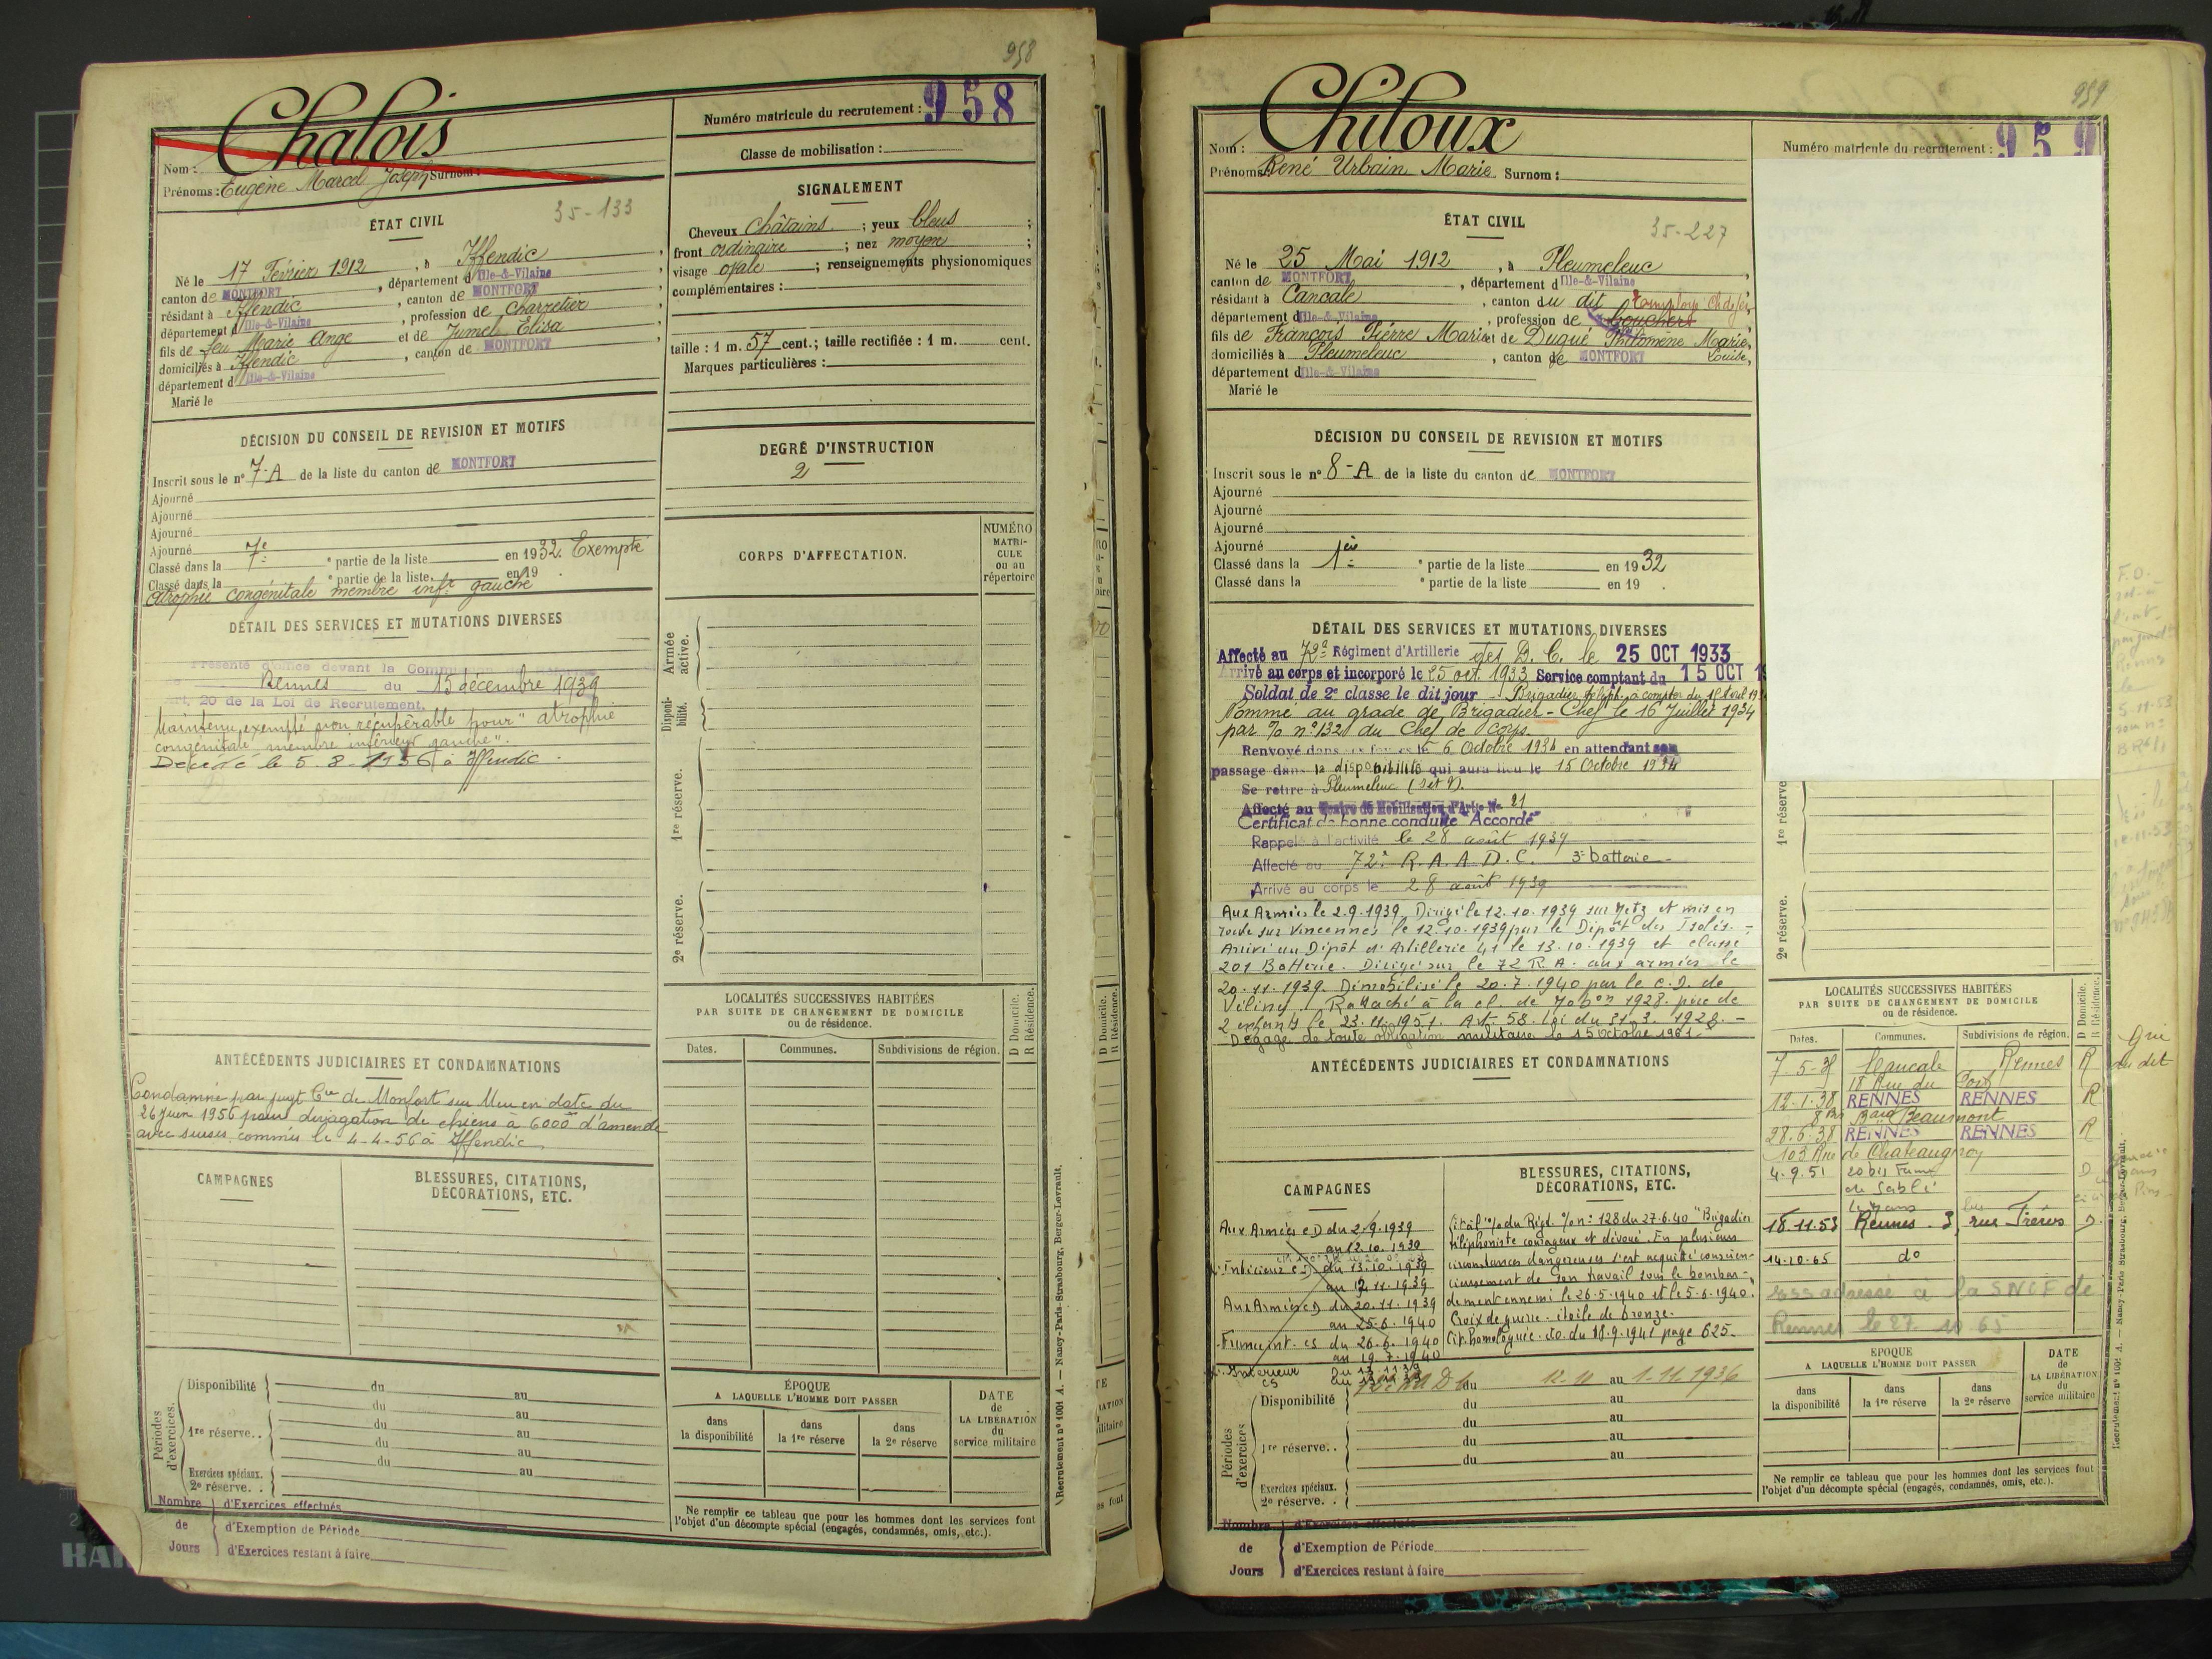 958
Chalois
Nom :
Prénoms : Eugène Marcel Joseph Surnom :
Numéro matricule du recrutement : 958
Classe de mobilisation :
ÉTAT CIVIL
35-133
Né le 17 Février 1912, à Iffendic
canton de MONTFORT, département d'Ille-&-Vilaine,
résidant à Iffendic, canton de MONTFORT,
département d'Ille-&-Vilaine, profession de charretier
fils de feu Marie Ange et de Jumel Elisa,
domiciliés à Iffendic, canton de MONTFORT
département d'Ille-&-Vilaine
Marié le
SIGNALEMENT
Cheveux châtains ; yeux bleus ;
front ordinaire ; nez moyen ;
visage ovale ; renseignements physionomiques
complémentaires :
taille : 1 m. 57 cent.; taille rectifiée : 1 m. cent.
Marques particulières :
DÉCISION DU CONSEIL DE REVISION ET MOTIFS
Inscrit sous le n° 7-A de la liste du canton de MONTFORT
Ajourné
Ajourné
Ajourné
Ajourné
Classé dans la 7e ° partie de la liste en 1932. Exempté
Classé dans la ° partie de la liste. en 19 .
Atrophie congénitale membre infr gauche
DEGRÉ D'INSTRUCTION
2
CORPS D'AFFECTATION.
NUMÉRO
MATRI-
CULE
ou au
répertoire
DÉTAIL DES SERVICES ET MUTATIONS DIVERSES
Présenté d'office devant la Commission
Rennes du 15 décembre 1939
art. 20 de la Loi de Recrutement.
Maintenu exempté non récupérable pour "atrophie
congénitale membre inférieur gauche".
Décédé le 5-8-1956 à Iffendic.
Armée
active.
Disponi-
bilité.
1re réserve.
2e réserve.
LOCALITÉS SUCCESSIVES HABITÉES
PAR SUITE DE CHANGEMENT DE DOMICILE
ou de résidence.
D Domicile.
R Résidence.
Dates. Communes. Subdivisions de région.
ANTÉCÉDENTS JUDICIAIRES ET CONDAMNATIONS
Condamné par jugt Cel de Monfort sur Meu en date du
26 Juin 1956 pour divagation de chiens à 6000 d'amende
avec sursis commis le 4-4-56 à Iffendic
CAMPAGNES
BLESSURES, CITATIONS,
DÉCORATIONS, ETC.
Périodes
d'exercices.
Disponibilité du au
du au
1re réserve.. du au
du au
du au
Exercices spéciaux.
2e réserve. . au
ÉPOQUE
A LAQUELLE L'HOMME DOIT PASSER
dans
la disponibilité
dans
la 1re réserve
dans
la 2e réserve
DATE
de
LA LIBÉRATION
du
service militaire
Nombre
de
Jours
d'Exercices effectués
d'Exemption de Période
d'Exercices restant à faire
Ne remplir ce tableau que pour les hommes dont les services font
l'objet d'un décompte spécial (engagés, condamnés, omis, etc.).
Recrutement n° 1001 A. — Nancy-Paris-Strasbourg, Berger-Levrault.
959
Chiloux
Nom :
Prénoms : René Urbain Marie Surnom :
Numéro matricule du recrutement : 959
ÉTAT CIVIL
35-227
Né le 25 Mai 1912, à Pleumeleuc,
canton de MONTFORT, département d'Ille-&-Vilaine
résidant à Cancale, canton du dit
département d'Ille-&-Vilaine, profession de boucher
fils de François Pierre Marie et de Dugué Philomène Marie,
domiciliés à Pleumeleuc, canton de MONTFORT Louise,
département d'Ille-&-Vilaine
Marié le
DÉCISION DU CONSEIL DE REVISION ET MOTIFS
Inscrit sous le n° 8-A de la liste du canton de MONTFORT
Ajourné
Ajourné
Ajourné
Ajourné
Classé dans la 1ère ° partie de la liste en 1932
Classé dans la ° partie de la liste en 19 .
DÉTAIL DES SERVICES ET MUTATIONS DIVERSES
Affecté au 72e Régiment d'Artillerie des D. C. le 25 OCT 1933
Arrivé au corps et incorporé le 25 oct. 1933 Service comptant du 15 OCT 19
Soldat de 2e classe le dit jour - Brigadier téléph. à compter du 18 avril 193
Nommé au grade de Brigadier-Chef le 16 Juillet 1934
par % n° 132 du Chef de Corps.
Renvoyé dans ses foyers le 6 Octobre 1934 en attendant son
passage dans la disponibilité qui aura lieu le 15 Octobre 1934
Se retire à Pleumeleuc (I et V).
Affecté au Centre de Mobilisation d'Artie N° 21
Certificat de bonne conduite "Accordé"
Rappelé à l'activité le 28 août 1939
Affecté au 72e R. A. A. D. C. 3e batterie
Arrivé au corps le 28 août 1939
Aux Armées le 2.9.1939 Dirigé le 12.10.1939 sur Metz et mis en
route sur Vincennes le 12.10.1939 par le Dépôt des Isolés. -
Arrivé au Dépôt d'Artillerie 41 le 13.10.1939 et classé
201 Batterie. Dirigé sur le 72 R.A. aux armées le
20.11.1939. Démobilisé le 20.7.1940 par le c.D. de
Véliny. Rattaché à la cl. de mobon 1928. père de
2 enfants le 23.11.1951. Art. 58. loi du 31-3-1928. -
Dégagé de toute obligation militaire le 15 octobre 1961.
1re réserve
2e réserve.
ANTÉCÉDENTS JUDICIAIRES ET CONDAMNATIONS
LOCALITÉS SUCCESSIVES HABITÉES
PAR SUITE DE CHANGEMENT DE DOMICILE
ou de résidence.
D Domicile.
R Résidence.
Dates. Communes. Subdivisions de région.
Cancale Rennes R
18 Rue du Port
12-1-38 RENNES RENNES R
8 Bis Bard Beaumont
28-6-38 RENNES RENNES R
103 Rue de Chateaugiron
4.9.51 20 bis D
de Sablé
le Mans
18.11.53 Rennes. 3, rue Frères D.
14-10-65 do
adressé à la SNCF de
Rennes le 27 10 65
CAMPAGNES
Aux Armées cD du 2.9.1939
au 12.10.1939
Intérieur cs du 13.10.1939
au 12.11.1939
Aux Armées cD du 20.11.1939
au 25.6.1940
cs du 26.6.1940
au 19.7.1940
Intérieur
cs
BLESSURES, CITATIONS,
DÉCORATIONS, ETC.
Cité à l'% du Rigt. % n° 128 du 27-6.40 "Brigadier
téléphoniste courageux et dévoué. En plusieurs
circonstances dangereuses s'est acquitté conscien-
cieusement de son travail sous le bombar-
dement ennemi le 26-5-1940 et le 5-6-1940.
Croix de guerre. étoile de bronze.
Cit. homologuée. J.O. du 18.9.1941 page 625.
Périodes
d'exercices
Disponibilité du 12-11 au 1-11-1936
du au
du au
1re réserve.. du au
du au
Exercices spéciaux.
2e réserve. .
EPOQUE
A LAQUELLE L'HOMME DOIT PASSER
dans
la disponibilité
dans
la 1re réserve
dans
la 2e réserve
DATE
de
LA LIBÉRATION
du
service militaire
Nombre
de
Jours
d'Exercices effectués
d'Exemption de Période
d'Exercices restant à faire
Ne remplir ce tableau que pour les hommes dont les services font
l'objet d'un décompte spécial (engagés, condamnés, omis, etc.).
Recrutement n° 1001 A. — Nancy-Paris Strasbourg, Berger-Levrault.